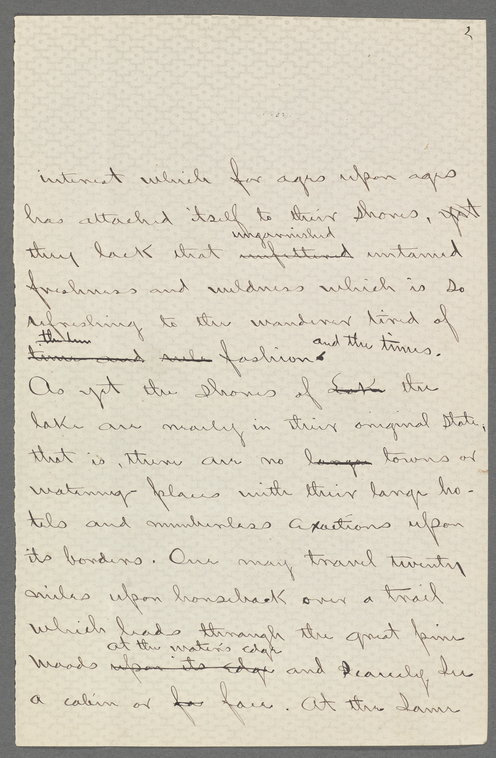 2
interest which for ages upon ages
has attached itself to their shores, yet
ungarnished
they lack that unfettered untamed
freshness and wildness which is so
refreshing to the wanderer tired of
and the times.
times and rule fashion
As yet the shores of Lake the
lake are nearly in their original state,
that is, there are no large towns or
watering places with their large ho-
tels and numberless exactions upon
its borders. One may travel twenty
miles upon horseback over a trail
which leads through the great pine
at the water's edge
woods upon its edge and scarcely see
a cabin or face. At the same